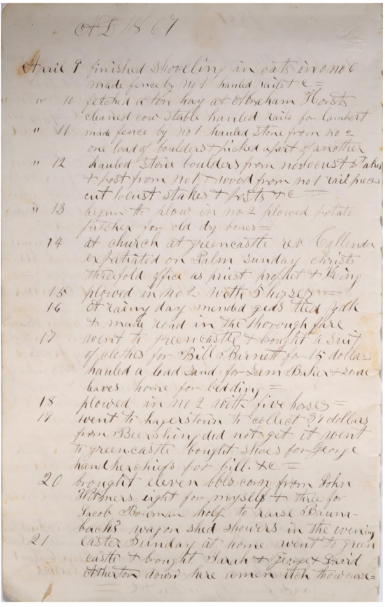 AD 1867
April 9 finished shoveling in oats in no 6
made fence by no 1 hauled rails &c =
" 10 fetched a ton hay at Abraham
cleared cow stable hauled rails for Lambert
" 11 made fence by no 1 hauled stone from no 2
one load of boulders & picked a part of another
" 12 hauled stone boulders from
& post from no 1 & wood from no 1 rail pieces
cut locust stakes & posts &c =
" 13 begun to plow in no 2 plowed potato
patches for old dy bones =
14 at church at greencastle rev Callender
expatiated on Palm sunday christs
threefold office as priest prophet & king
15 plowed in no 2 with 5 horses
16 A rainy day mended
& made road in the thoroughfare
17 went to greencastle & bought a suit
of clothes for Bill Burnett for 15 dollars
hauled a load sand for Sam Baker & some
leaves home for bedding =
18 plowed in no 2 with five horses =
19 went to hagerstown to collect 39 dollars
from did not get it went
to greencastle bought shoes for George
handkerchiefs for bill &c =
20 brought eleven bbls corn from John
Witmers eight for myself & three for
Jacob Bowman help to raise
wagon shed showers in the evening
21 Easter Sunday at home went to green
castle & bought Sarah & george & David
down here women